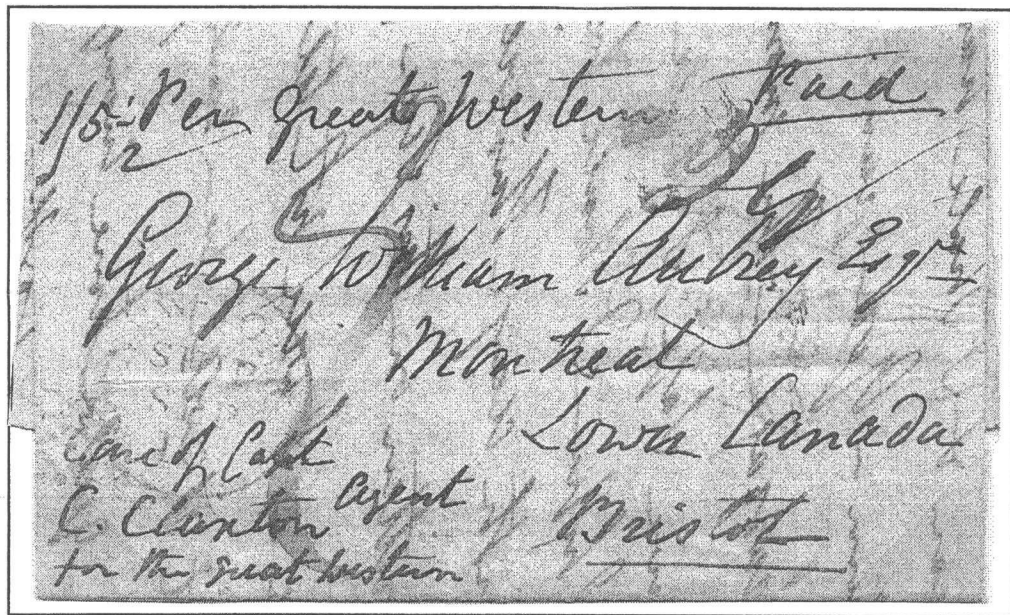 1/5½ Per Great Western Paid
George William Aubrey Esqre
Montreal
Lower Canada
Care of Capt
C. Claxton agent
for the great western
Bristol